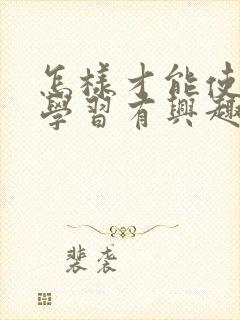 怎樣才能使
學習有興趣
裴袭